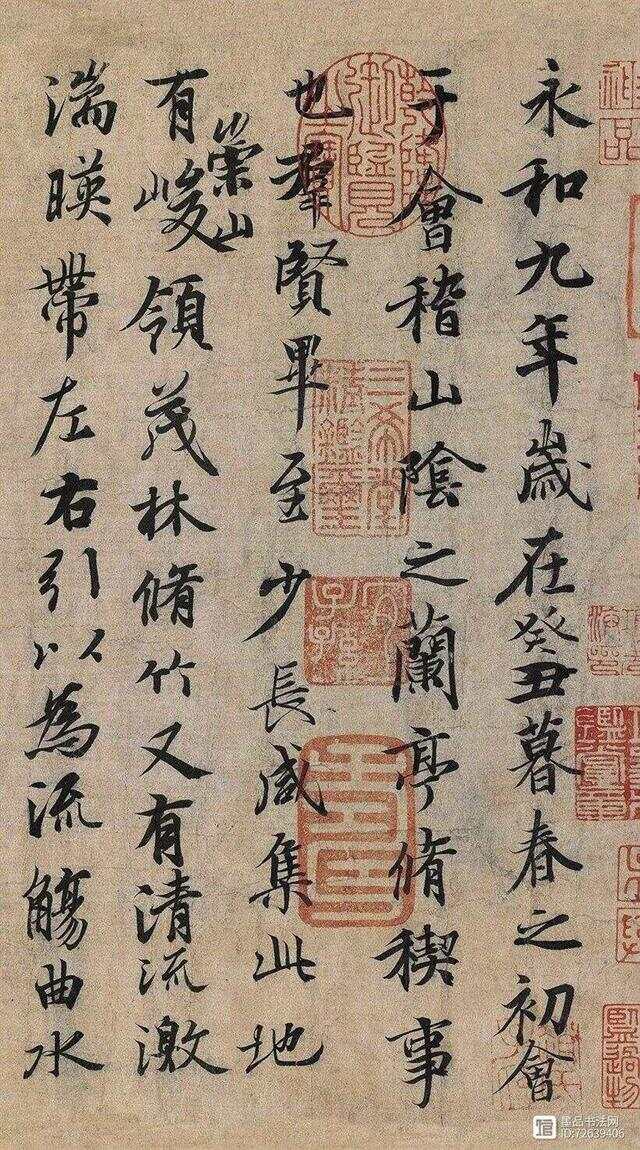 永和九年歲在癸丑暮春之初會
于會稽山陰之蘭亭脩稧事
也羣賢畢至少長咸集此地
有崇山峻領茂林脩竹又有清流激
湍暎帶左右引以為流觴曲水
三希堂精鑑璽
宜子孫
墨品书法网
ID:72639406